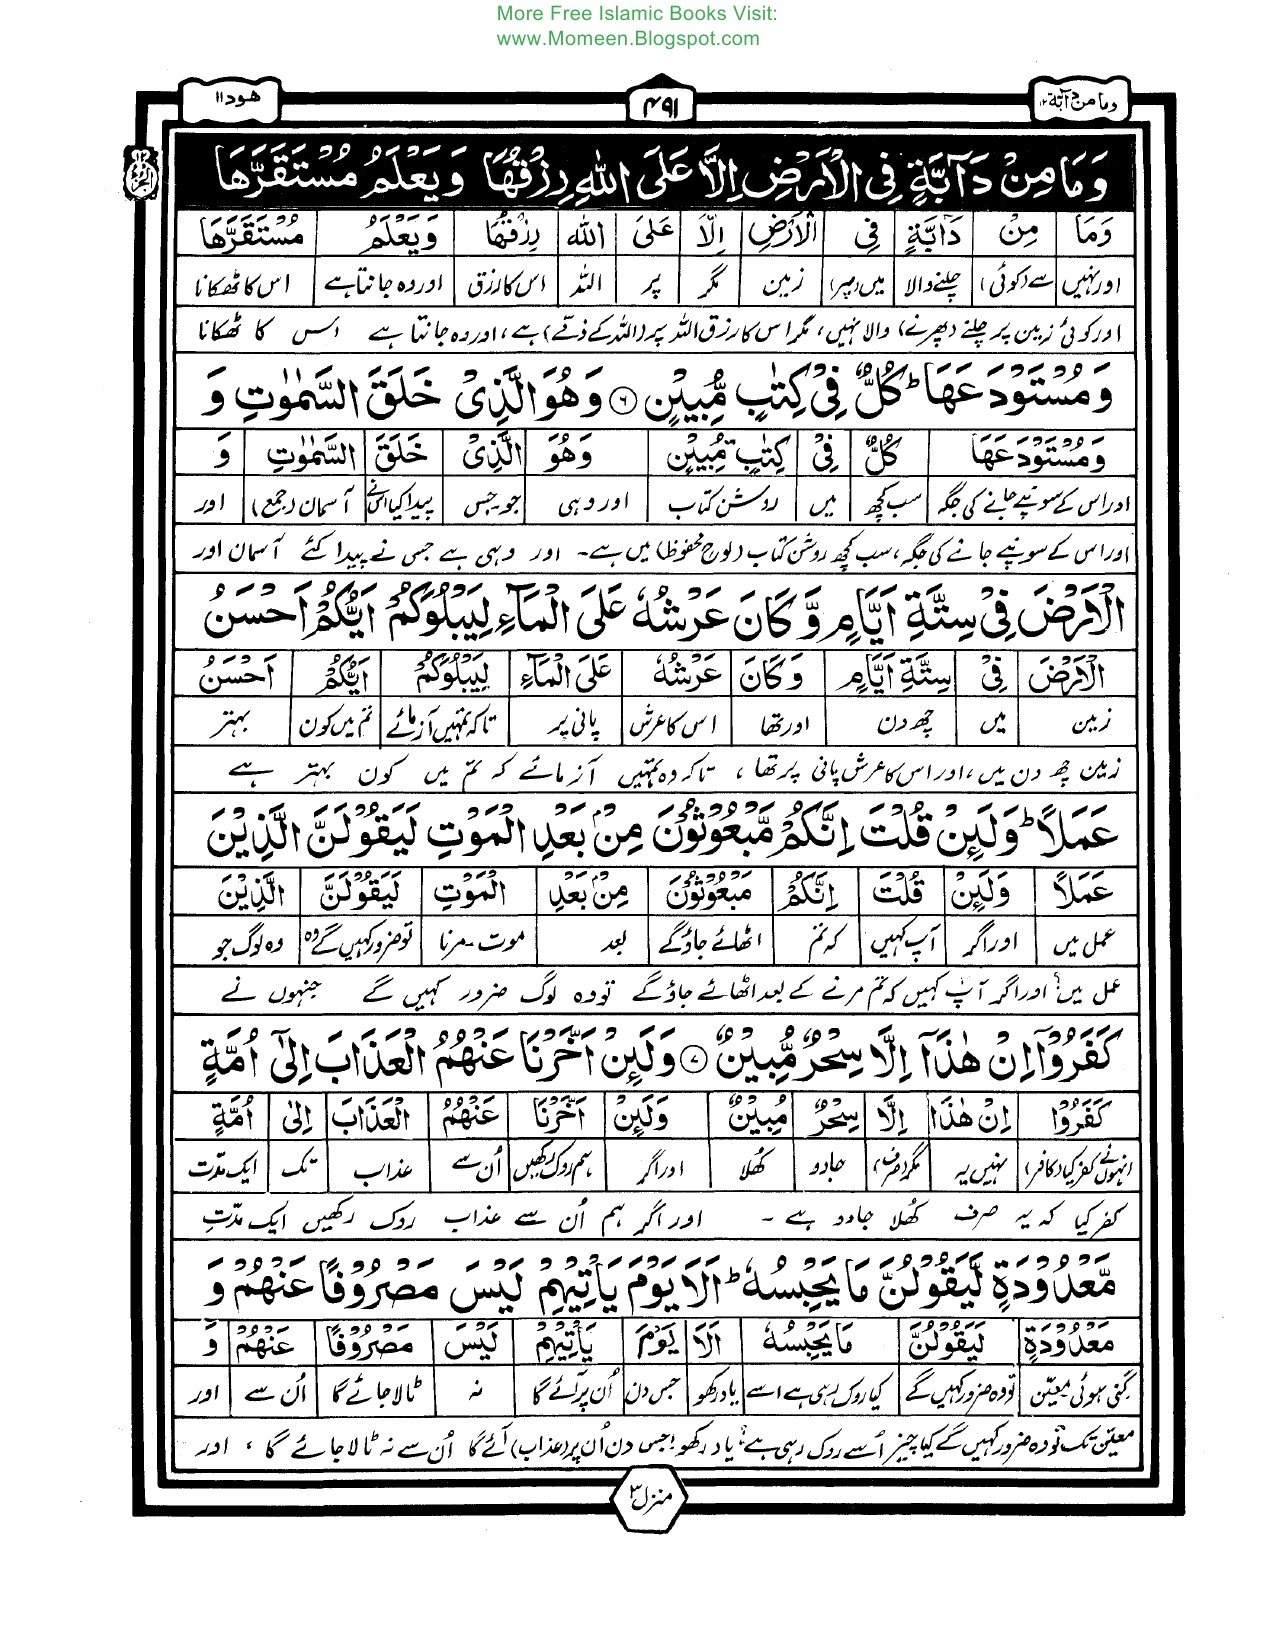 More Free Islamic Books Visit:
www.Momeen.Blogspot.com
وما من دآبة ۱۲
۴۹۱
هود ۱۱
وَمَا مِنْ دَآبَّةٍ فِی الْاَرْضِ اِلَّا عَلَی اللهِ رِزْقُهَا وَیَعْلَمُ مُسْتَقَرَّهَا
وَمَا مِنْ دَآبَّةٍ فِی الْاَرْضِ اِلَّا عَلَی الله رِزْقُهَا وَیَعْلَمُ مُسْتَقَرَّهَا
اور نہیں سے (کوئی) چلنے والا میں (پر) زمین مگر پر اللہ اس کا رزق اور وہ جانتا ہے اس کا ٹھکانا
اور کوئی زمین پر چلنے (پھرنے) والا نہیں، مگر اس کا رزق اللہ پر (اللہ کے ذمّے) ہے، اور وہ جانتا ہے اس کا ٹھکانا
وَمُسْتَوْدَعَهَا ؕ كُلٌّ فِیْ كِتٰبٍ مُّبِیْنٍ ۶ وَهُوَ الَّذِیْ خَلَقَ السَّمٰوٰتِ وَ
وَمُسْتَوْدَعَهَا كُلٌّ فِیْ كِتٰبٍ مُّبِیْنٍ وَهُوَ الَّذِیْ خَلَقَ السَّمٰوٰتِ وَ
اور اس کے سونپے جانے کی جگہ سب کچھ میں روشن کتاب اور وہی جو۔ جس پیدا کیا اس نے آسمان (جمع) اور
اور اس کے سونپے جانے کی جگہ، سب کچھ روشن کتاب (لوح محفوظ) میں ہے۔ اور وہی ہے جس نے پیدا کئے آسمان اور
الْاَرْضَ فِیْ سِتَّةِ اَیَّامٍ وَّكَانَ عَرْشُهٗ عَلَی الْمَآءِ لِیَبْلُوَكُمْ اَیُّكُمْ اَحْسَنُ
الْاَرْضَ فِیْ سِتَّةِ اَیَّامٍ وَّكَانَ عَرْشُهٗ عَلَی الْمَآءِ لِیَبْلُوَكُمْ اَیُّكُمْ اَحْسَنُ
زمین میں چھ دن اور تھا اس کا عرش پانی پر تاکہ تمہیں آزمائے تم میں کون بہتر
زمین چھ دن میں، اور اس کا عرش پانی پر تھا، تاکہ وہ تمہیں آزمائے کہ تم میں کون بہتر ہے
عَمَلًا ؕ وَلَىِٕنْ قُلْتَ اِنَّكُمْ مَّبْعُوْثُوْنَ مِنْۢ بَعْدِ الْمَوْتِ لَیَقُوْلَنَّ الَّذِیْنَ
عَمَلًا وَلَىِٕنْ قُلْتَ اِنَّكُمْ مَبْعُوْثُوْنَ مِنْۢ بَعْدِ الْمَوْتِ لَیَقُوْلَنَّ الَّذِیْنَ
عمل میں اور اگر آپ کہیں کہ تم اٹھائے جاؤگے بعد موت۔ مرنا تو ضرور کہیں گے وہ وہ لوگ جو
عمل میں؟ اور اگر آپ کہیں کہ تم مرنے کے بعد اٹھائے جاؤگے تو وہ لوگ ضرور کہیں گے جنہوں نے
كَفَرُوْۤا اِنْ هٰذَاۤ اِلَّا سِحْرٌ مُّبِیْنٌ ۷ وَلَىِٕنْ اَخَّرْنَا عَنْهُمُ الْعَذَابَ اِلٰۤی اُمَّةٍ
كَفَرُوْا اِنْ هٰذَا اِلَّا سِحْرٌ مُبِیْنٌ وَلَىِٕنْ اَخَّرْنَا عَنْهُمُ الْعَذَابَ اِلٰی اُمَّةٍ
انہوں نے کفر کیا (کافر) نہیں یہ مگر (صرف) جادو کھُلا اور اگر ہم روک رکھیں اُن سے عذاب تک ایک مدّت
کفر کیا کہ یہ صرف کھُلا جادو ہے۔ اور اگر ہم اُن سے عذاب روک رکھیں ایک مدّتِ
مَّعْدُوْدَةٍ لَّیَقُوْلُنَّ مَا یَحْبِسُهٗ ؕ اَلَا یَوْمَ یَاْتِیْهِمْ لَیْسَ مَصْرُوْفًا عَنْهُمْ وَ
مَعْدُوْدَةٍ لَیَقُوْلُنَّ مَا یَحْبِسُهٗ اَلَا یَوْمَ یَاْتِیْهِمْ لَیْسَ مَصْرُوْفًا عَنْهُمْ وَ
گنی ہوئی معیّن تو وہ ضرور کہیں گے کیا روک رہی ہے اسے یاد رکھو جس دن اُن پر آئے گا نہ ٹالا جائے گا اُن سے اور
معیّن تک تو وہ ضرور کہیں گے کیا چیز اُسے روک رہی ہے؟ یاد رکھو! جس دن اُن پر (عذاب) آئے گا اُن سے نہ ٹالا جائے گا، اور
منزل ۳